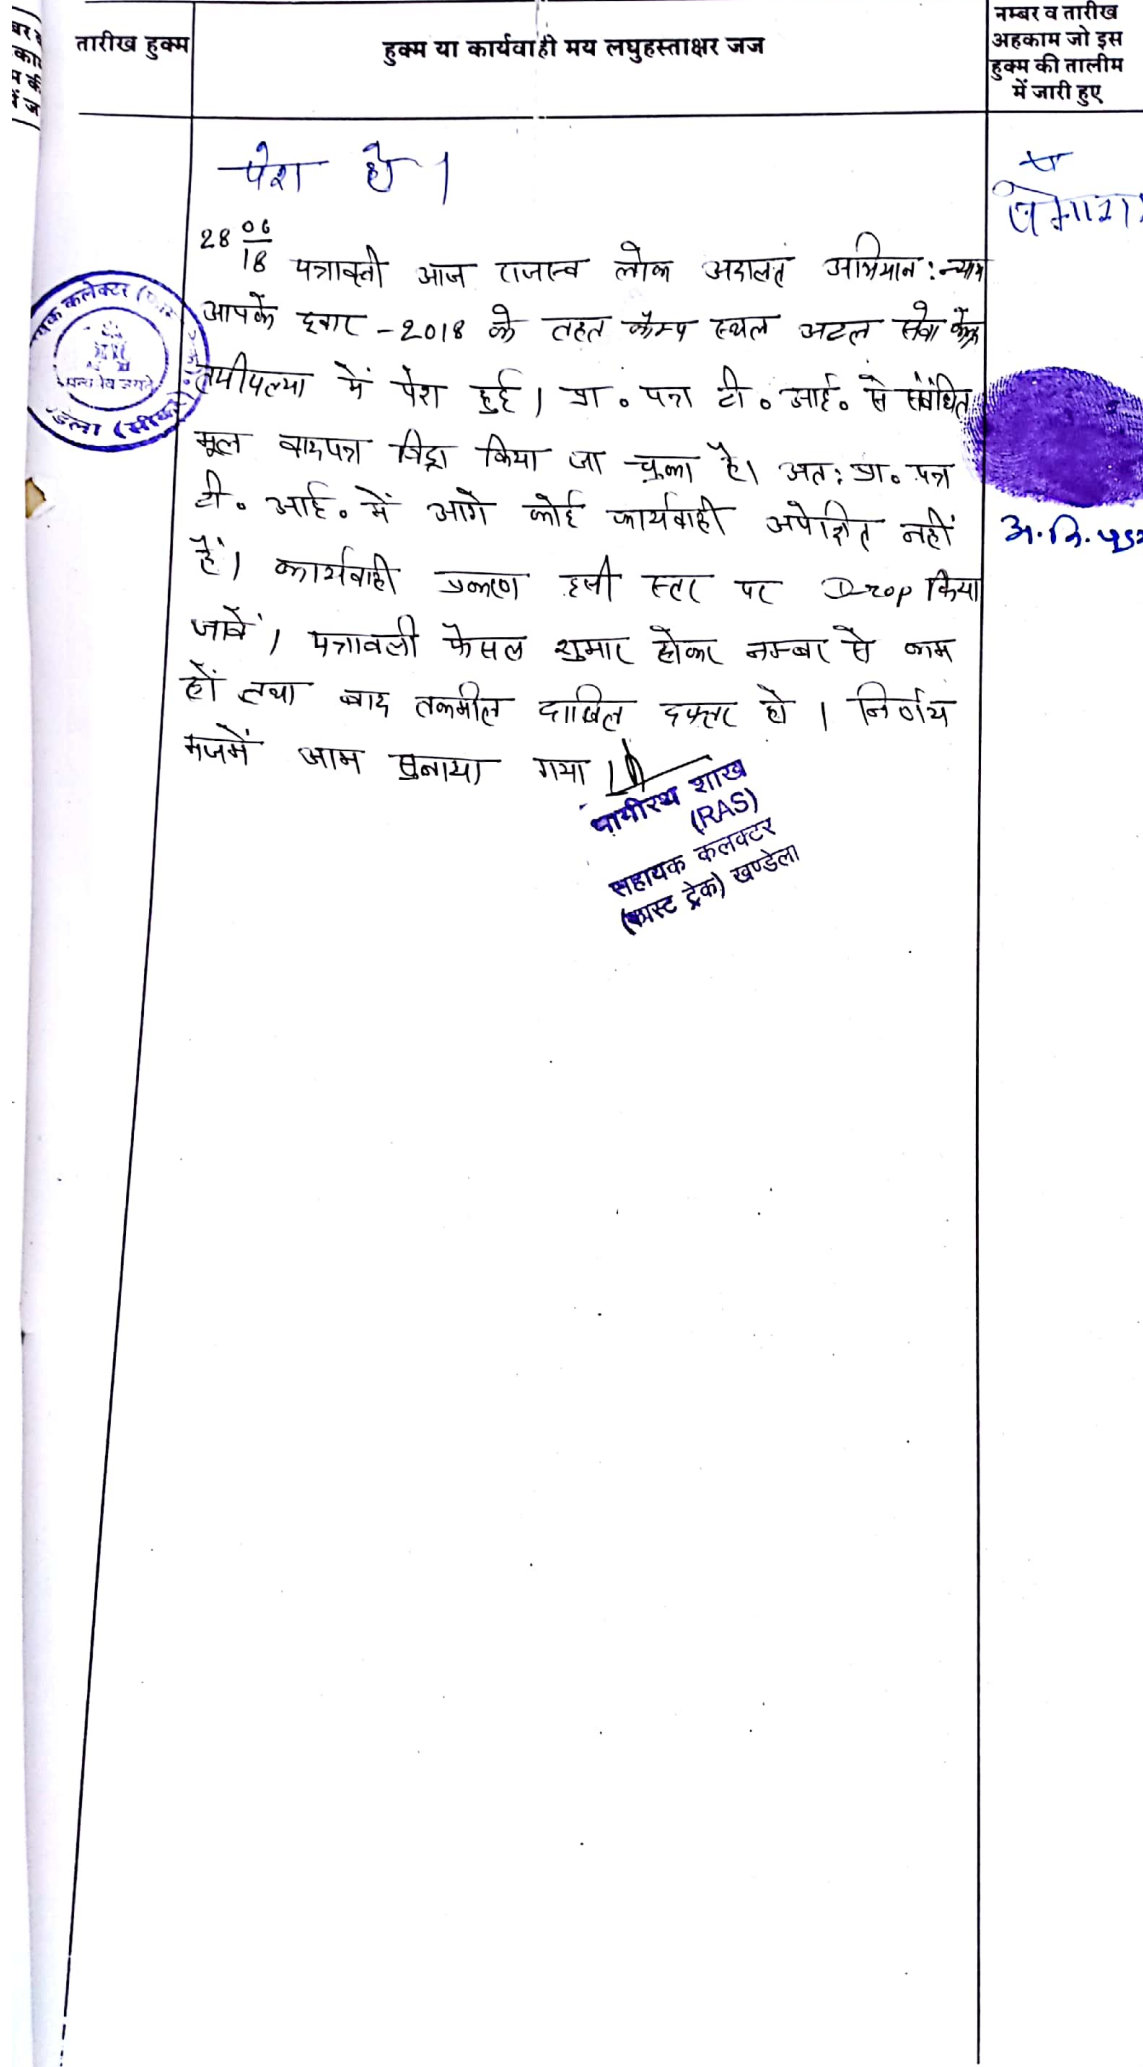 तारीख हुक्म
हुक्म या कार्यवाही मय लघुहस्ताक्षर जज
नम्बर व तारीख
अहकाम जो इस
हुक्म की तालीम
में जारी हुए
पेश हो ।
28 06/18 पत्रावली आज राजस्व लोक अदालत अभियान : न्याय
आपके द्वार - 2018 के तहत कैम्प स्थल अटल सेवा केंद्र
में पेश हुई । प्रा . पत्र टी . आई . से संबंधित
मूल वादपत्र विड्रा किया जा चुका है। अत: प्रा . पत्र
टी . आई . में आगे कोई कार्यवाही अपेक्षित नहीं
हैं । कार्यवाही प्रकरण इसी स्तर पर Drop किया
जावें । पत्रावली फैसल शुमार होकर नम्बर से कम
हों तथा बाद तकमील दाखिल दफ्तर हो । निर्णय
मजमें आम सुनाया गया ।
शाख
(RAS)
सहायक कलक्टर
(फास्ट ट्रेक) खण्डेला
कलेक्टर
अ. नि.